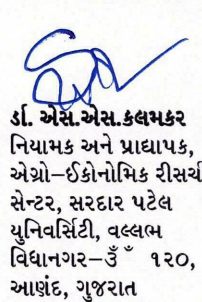 ર્ડા. એસ.એસ.કલમકર
નિયામક અને પ્રાધ્યાપક,
એગ્રો–ઈકોનોમિક રીસર્ચ
સેન્ટર, સરદાર પટેલ
યુનિવર્સિટી, વલ્લભ
વિધાનગર–૩ઁ ઁ ૧૨૦,
આણંદ, ગુજરાત